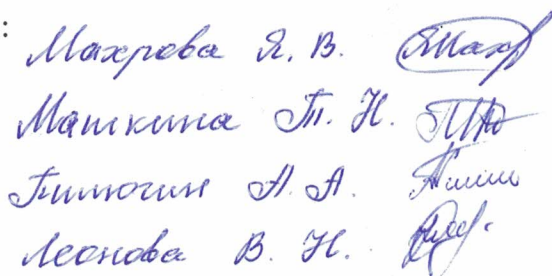 :
Махрова Я. В.
Машкина Т. Н.
Пилюгин А. А.
Леонова В. Н.